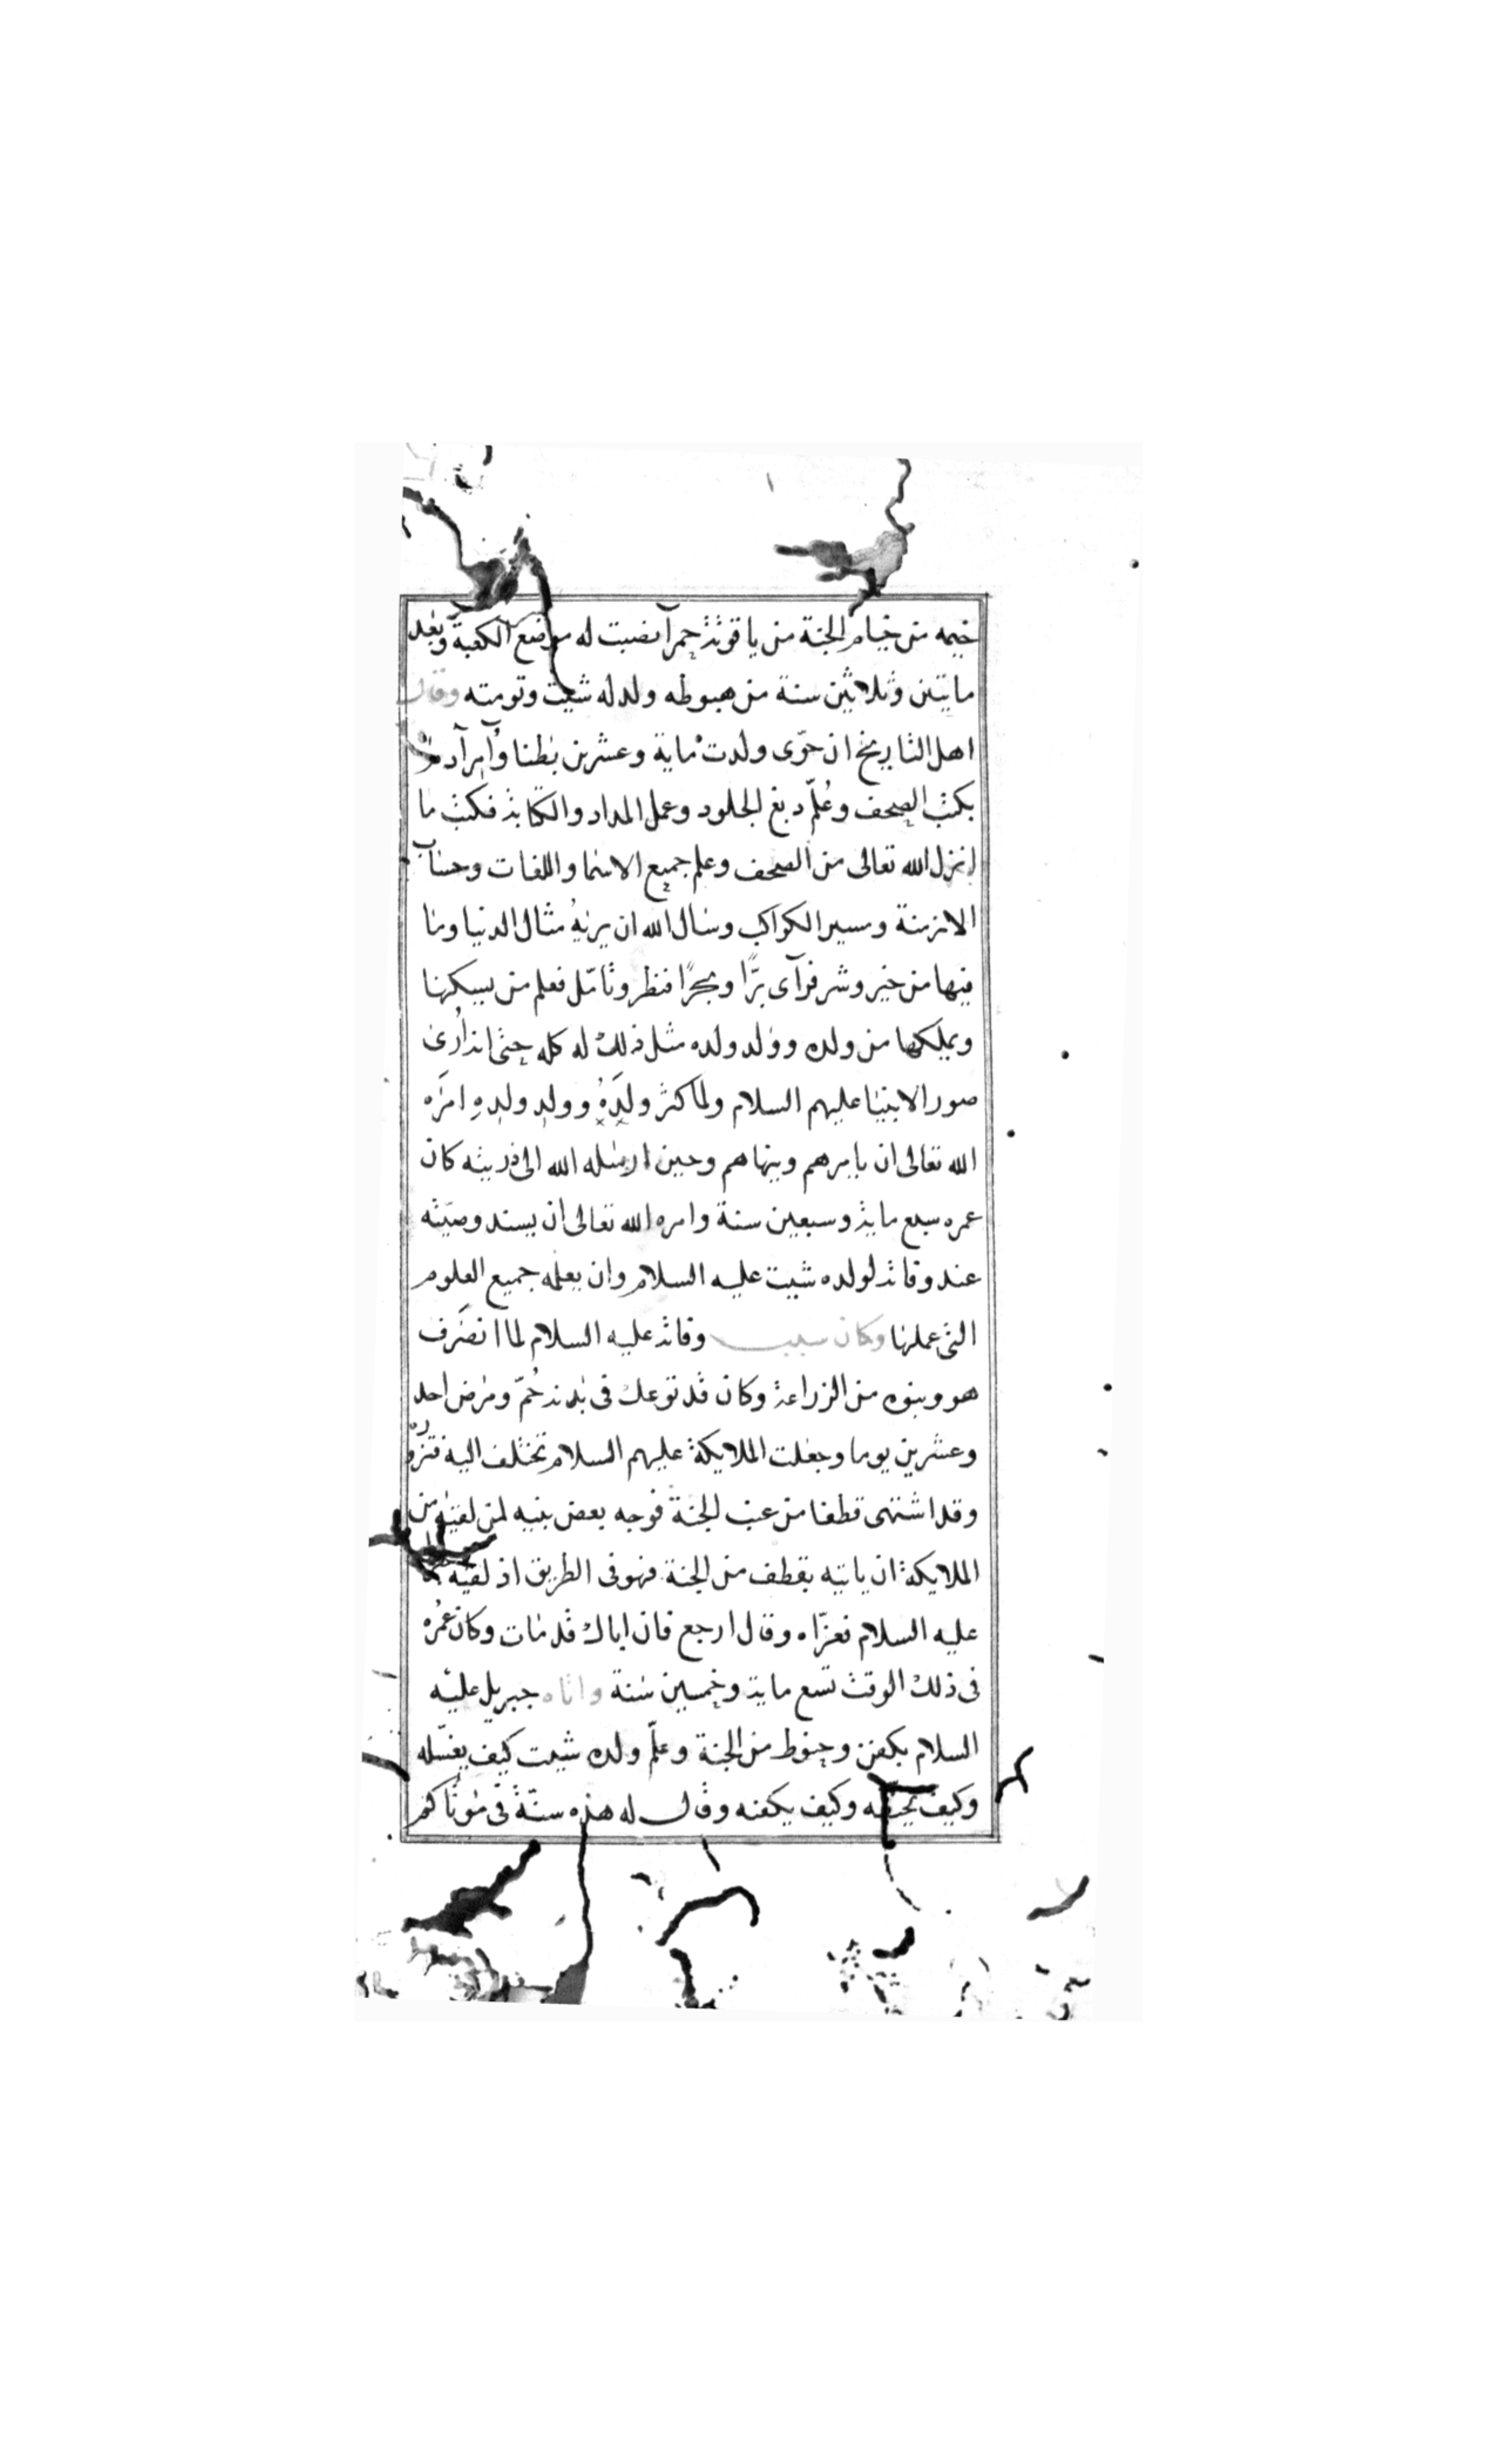 خيمه من خيام الجنة من ياقوتة حمرآ نصبت له موضع الكعبة وبعد
مايتين وثلاثين سنة من هبوطه ولد له شيت وتومته وقال
اهل التاريخ ان حوّى ولدت ماية وعشرين بطنا وأمر آدم
بكتب الصحف وعُلّم دبغ الجلود وعمل المداد والكتابة فكتب ما
انزل الله تعالى من الصحف وعلم جميع الاسما واللغات وحساب
الازمنة ومسير الكواكب وسال الله ان يريهُ مثال الدنيا وما
فيها من خير وشر فرآى برًّا وبحرًا فنظر وتامّل فعلم من يسكنها
ويملكها من ولده وولد ولده مثل ذلك له كله حتى انه أرى
صور الانبيا عليهم السلام ولما كثر ولدَهُ وولدِ ولدِهِ امرَه
الله تعالى ان يامرهم وينهاهم وحين ارسله الله الى ذريته كان
عمره سبع ماية وسبعين سنة وامره الله تعالى ان يسند وصيّته
عند وفاته لولده شيت عليه السلام وان يعلمه جميع العلوم
التى عملها وكان سبب وفاته عليه السلام لما انصَرف
هو وبنوه من الزراعة وكان قد توعك فى بدنه حُمّ ومرض احد
وعشرين يوما وجعلت الملايكة عليهم السلام تختلف اليه فتزوره
وقد اشتهى قطفا من عنب الجنة فوجه بعض بنيه لمن لقيه من
الملايكة ان ياتيه بقطف من الجنة فهو فى الطريق اذ لقيه
عليه السلام فعزّاه وقال ارجع فان اباك قد مات وكان عمُره
فى ذلك الوقت تسع ماية وخمسين سنة واتاه جبريل عليه
السلام بكفن وحنوط من الجنة وعلّم ولده شيت كيف يغسّله
وكيف يحنطه وكيف يكفنه وقال له هذه سنّة فى موتاكم